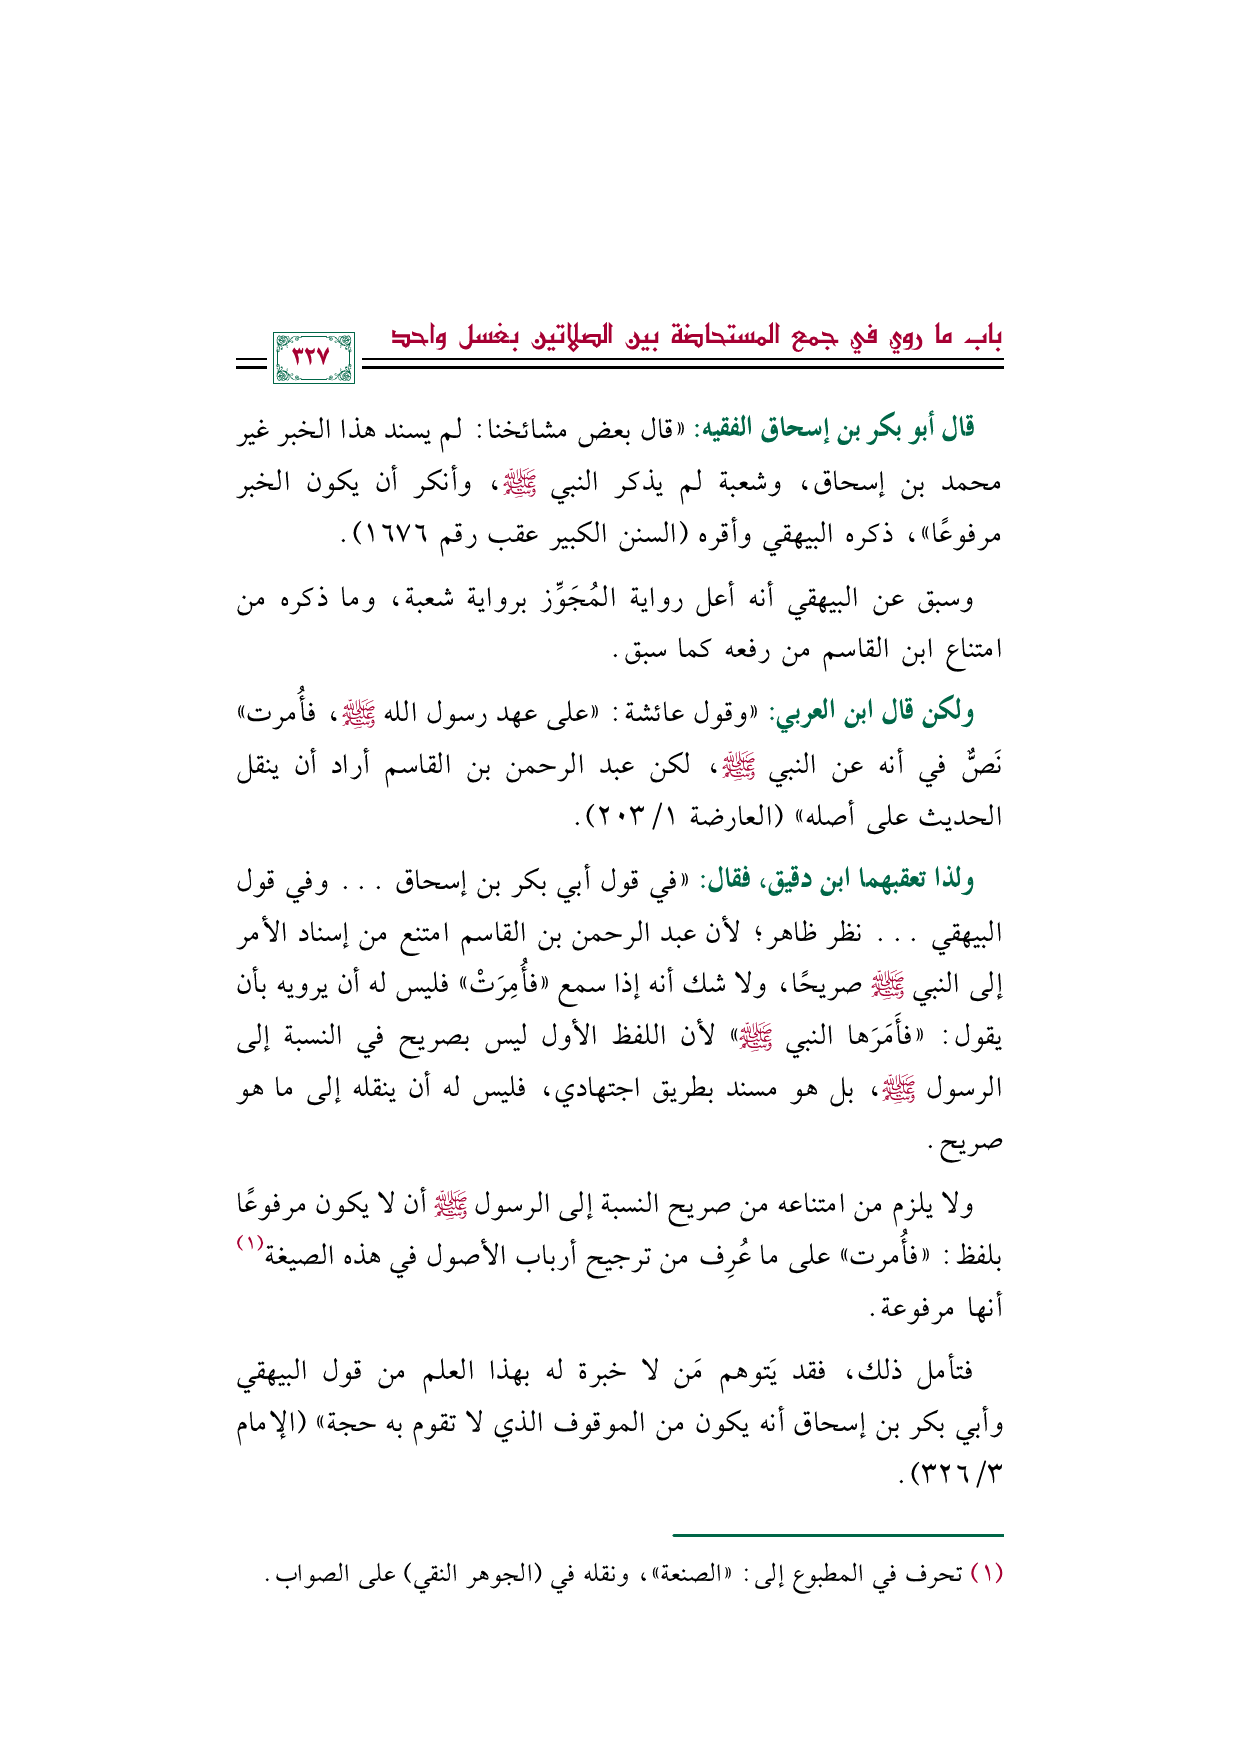 باب ما روي في جمع المستحاضة بين الصلاتين بغسل واحد
٣٢٧
قال أبو بكر بن إسحاق الفقيه: «قال بعض مشائخنا: لم يسند هذا الخبر غير
محمد بن إسحاق، وشعبة لم يذكر النبي ﷺ، وأنكر أن يكون الخبر
مرفوعًا»، ذكره البيهقي وأقره (السنن الكبير عقب رقم ١٦٧٦).
وسبق عن البيهقي أنه أعل رواية المُجَوِّز برواية شعبة، وما ذكره من
امتناع ابن القاسم من رفعه كما سبق.
ولكن قال ابن العربي: «وقول عائشة: «على عهد رسول الله ﷺ، فأُمرت»
نَصٌّ في أنه عن النبي ﷺ، لكن عبد الرحمن بن القاسم أراد أن ينقل
الحديث على أصله» (العارضة ١/ ٢٠٣).
ولذا تعقبهما ابن دقيق، فقال: «في قول أبي بكر بن إسحاق ... وفي قول
البيهقي ... نظر ظاهر؛ لأن عبد الرحمن بن القاسم امتنع من إسناد الأمر
إلى النبي ﷺ صريحًا، ولا شك أنه إذا سمع «فأُمِرَتْ» فليس له أن يرويه بأن
يقول: «فأَمَرَها النبي ﷺ» لأن اللفظ الأول ليس بصريح في النسبة إلى
الرسول ﷺ، بل هو مسند بطريق اجتهادي، فليس له أن ينقله إلى ما هو
صريح.
ولا يلزم من امتناعه من صريح النسبة إلى الرسول ﷺ أن لا يكون مرفوعًا
بلفظ: «فأُمرت» على ما عُرِف من ترجيح أرباب الأصول في هذه الصيغة(١)
أنها مرفوعة.
فتأمل ذلك، فقد يَتوهم مَن لا خبرة له بهذا العلم من قول البيهقي
وأبي بكر بن إسحاق أنه يكون من الموقوف الذي لا تقوم به حجة» (الإمام
٣/ ٣٢٦).
(١) تحرف في المطبوع إلى: «الصنعة»، ونقله في (الجوهر النقي) على الصواب.